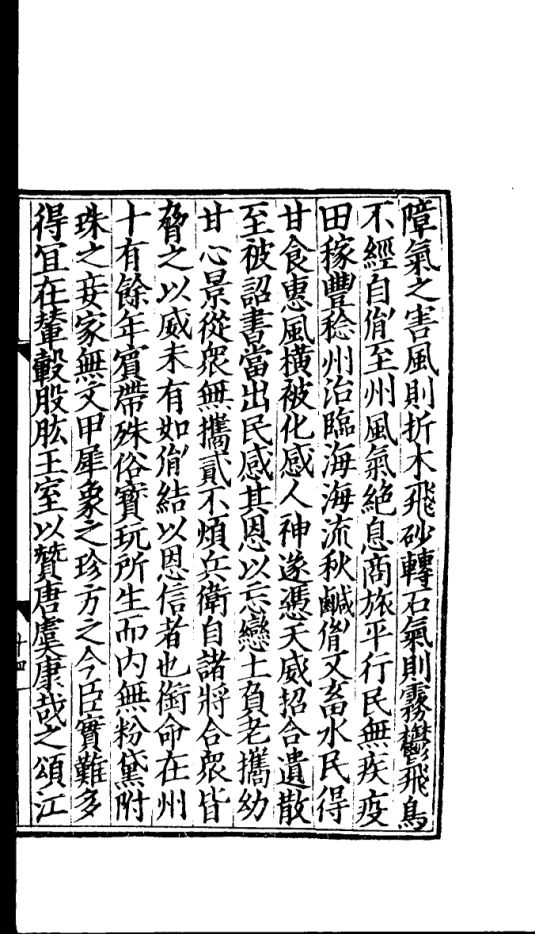 障氣之害風則折木飛砂轉石氣則霧鬱飛鳥
不經自胤至州風氣絶息商旅平行民無疾疫
田稼豐稔州治臨海海流秋鹹胤又畜水民得
甘食惠風橫被化感人神遂憑天威招合遺散
至被詔書當出民感其恩以忘戀土負老攜幼
甘心景從衆無攜貳不煩兵衛自諸將合衆皆
脅之以威未有如胤結以恩信者也銜命在州
十有餘年賓帶殊俗寶玩所生而內無粉黛附
珠之妾家無文甲犀象之珍方之今臣實難多
得宜在輦轂股肱王室以贊唐虞康哉之頌江
十四